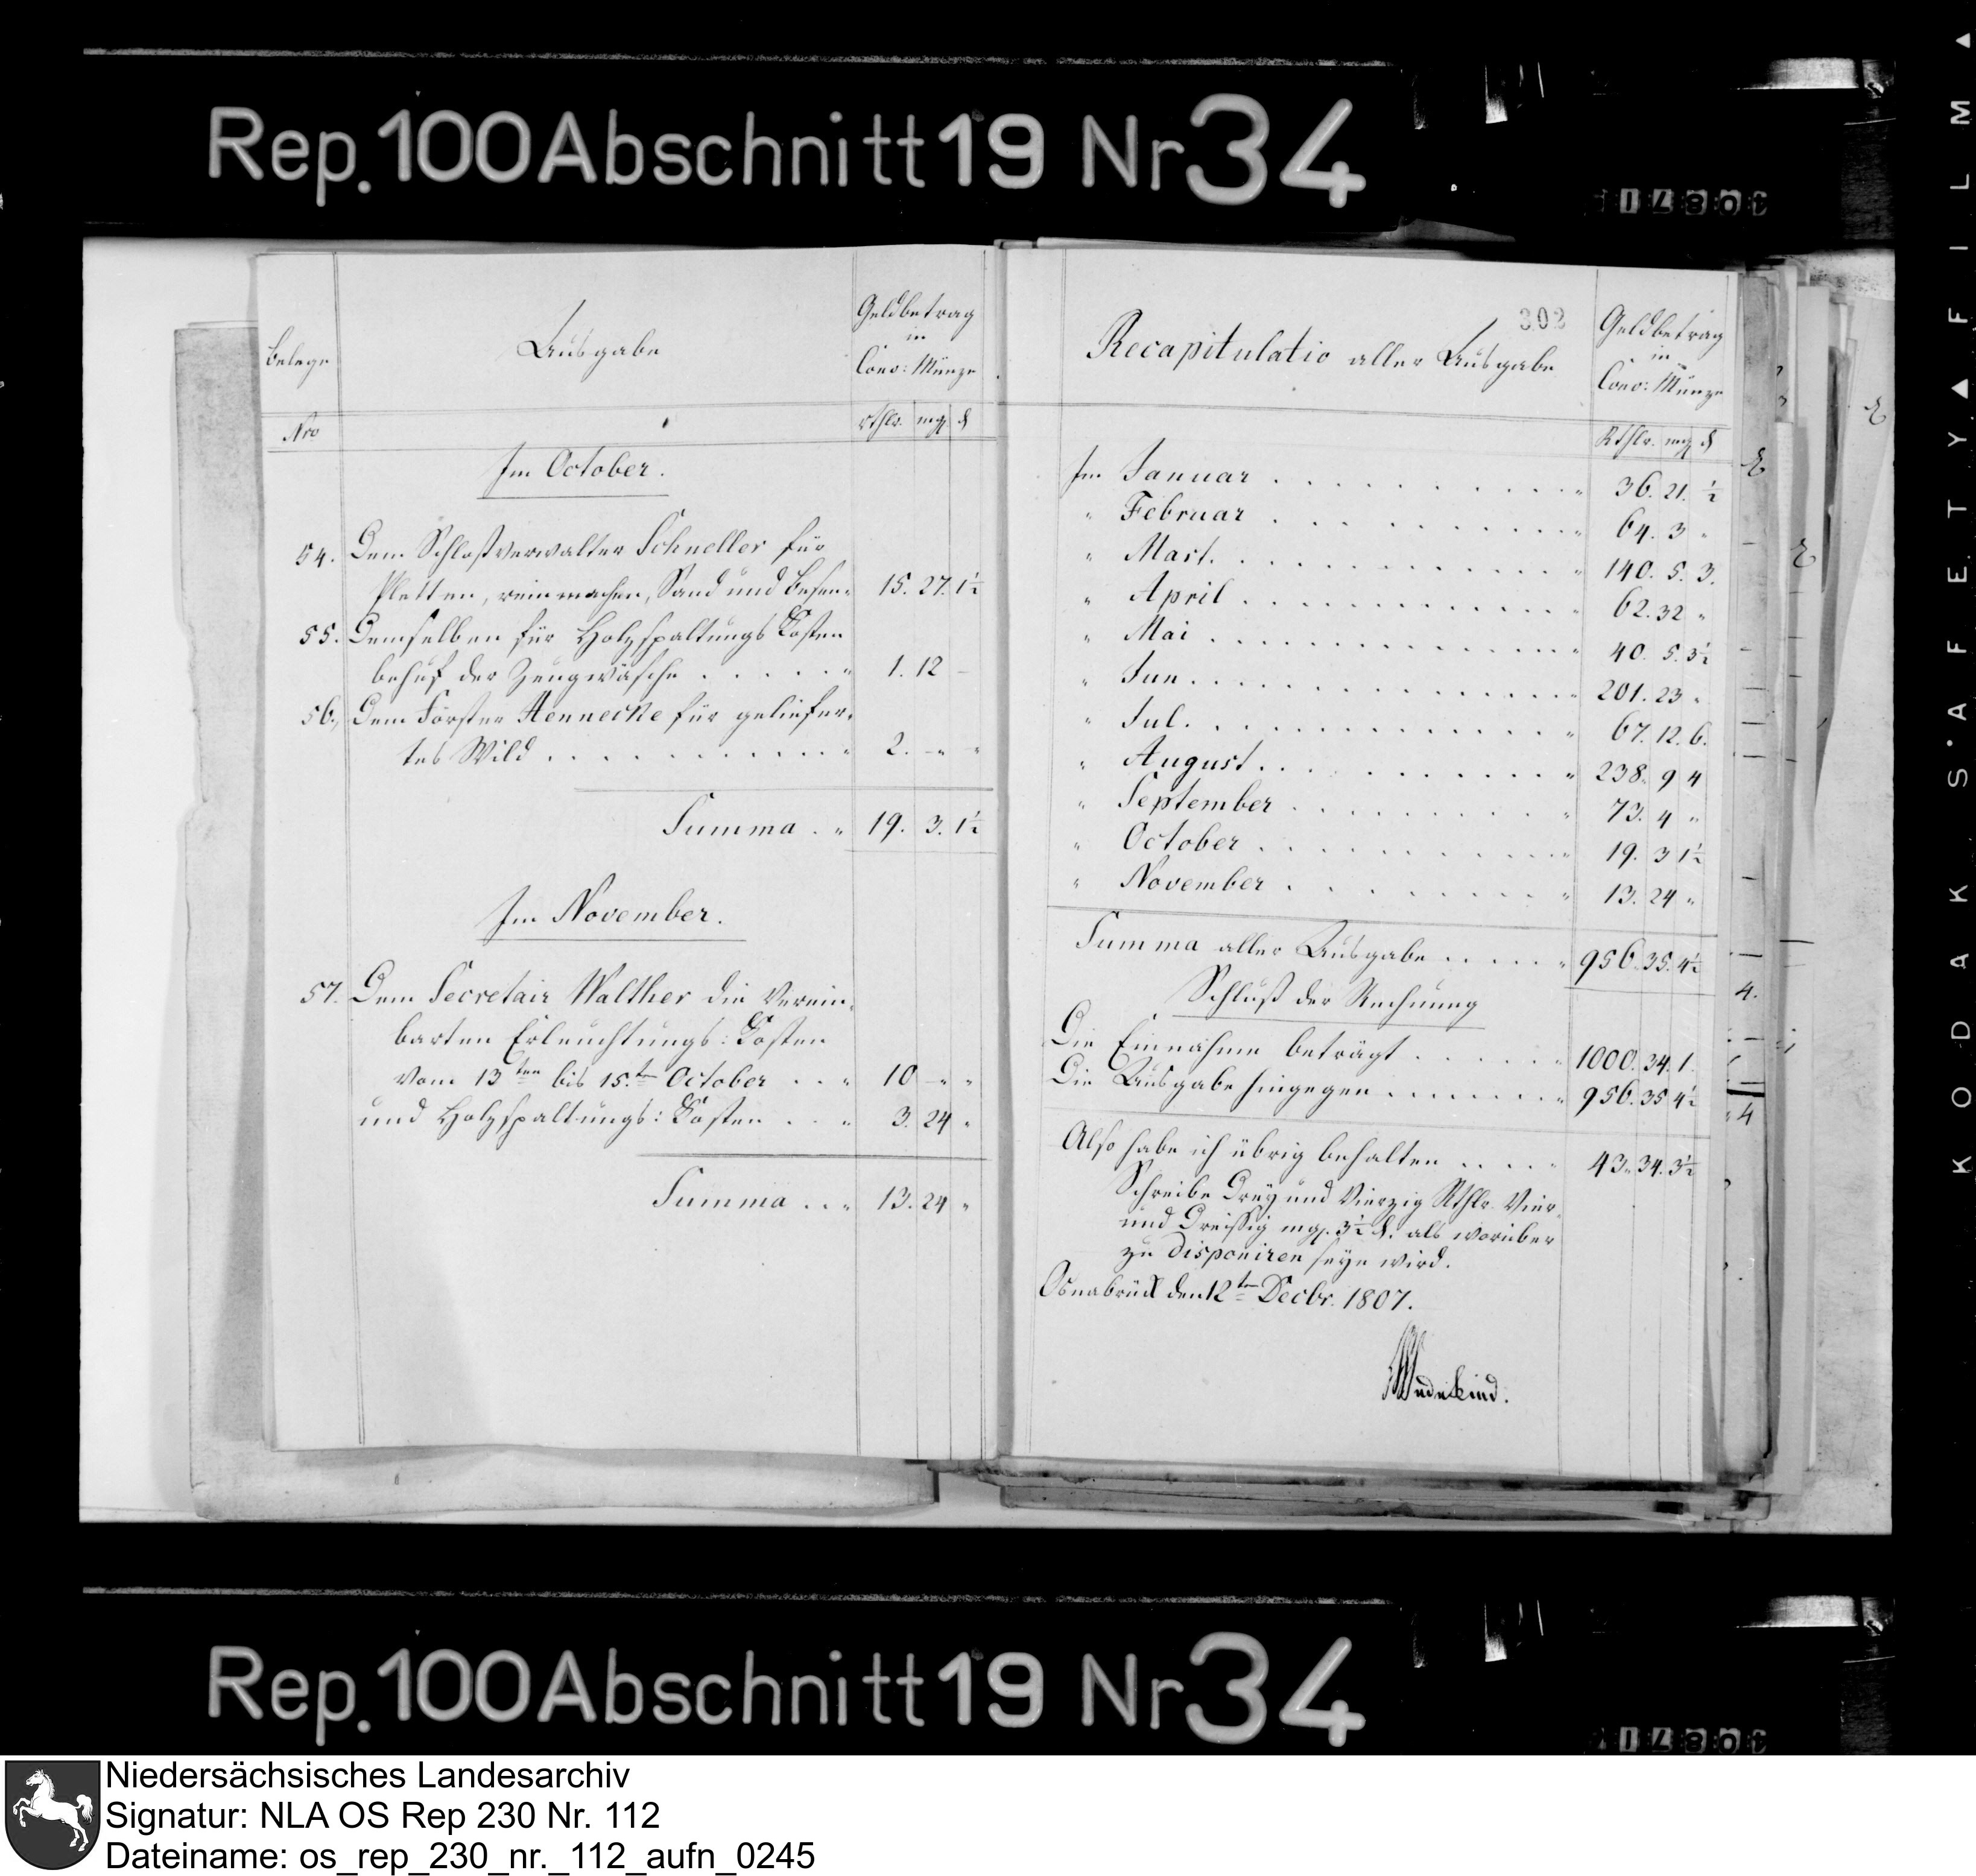 Rep. 100 Abschnitt 19 Nr 34
Belege
Ausgabe
Geldbetrag
in
Conv: Münze
Nro
rthlr. mgl ₰
Im October.
54. Dem Schloßverwalter Schneller für
Pletten, reinmachen, Sand und Besen " 15. 27. 1½
55. Demselben für Holzspaltungs Kosten
behuf der Zeugwäsche . . . . . " 1. 12 -
56., Dem Förster Hennecke für geliefer-
tes Wild . . . . . . . . . . . " 2. - " "
Summa . " 19. 3. 1½
Im November.
57. Dem Secretair Walther die verein-
barten Erleuchtungs: Kosten
vom 13ten bis 15.ten October . . " 10 - " "
und Holzspaltungs: Kosten . . " 3. 24 "
Summa . . " 13. 24 "
302
Recapitulatio aller Ausgabe
Geldbetrag
in
Conv: Münze
Rthlr. mgl ₰
Im Januar . . . . . . . . . . " 36. 21. ½
" Februar . . . . . . . . . . " 64. 3 "
" Mart. . . . . . . . . . . . " 140. 5. 3.
" April . . . . . . . . . . . " 62. 32 "
" Mai . . . . . . . . . . . . " 40. 5. 3½
" Jun . . . . . . . . . . . . " 201. 23 "
" Jul. . . . . . . . . . . . . " 67. 12. 6.
" August . . . . . . . . . . " 238. 9 4
" September . . . . . . . . . " 73. 4 "
" October . . . . . . . . . . " 19. 3 1½
" November . . . . . . . . . " 13. 24 "
Summa aller Ausgabe . . . . . " 956. 35. 4½
Schluß der Rechnung
Die Einnahme beträgt . . . . . " 1000. 34. 1.
Die Ausgabe hingegen . . . . . . " 956. 35 4½
Also habe ich übrig behalten . . . . " 43. 34. 3½
Schreibe Dreÿ und Vierzig Rthlr. Vier-
und Dreissig mgl. 3½ ₰. als worüber
zu disponiren seyn wird.
Osnabrück den 12ten Decbr. 1807.
Wedekind.
KODAK S'AFETY▲FILM▲
Rep. 100 Abschnitt 19 Nr 34
Niedersächsisches Landesarchiv
Signatur: NLA OS Rep 230 Nr. 112
Dateiname: os_rep_230_nr._112_aufn_0245